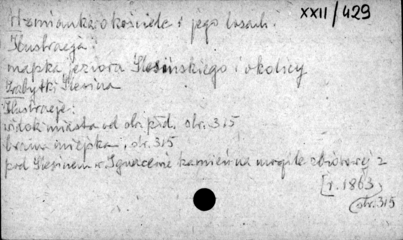 XXII/429
Wzmianka o kościele i jego losach.
Ilustracja:
mapka jeziora Ślesińskiego i okolicy
Zabytki Ślesina
Ilustracje:
widok miasta od str. płd. str. 315
brama miejska, str. 315
pod Ślesinem w Ignacewie kamień na mogile zbiorowej z
[r. 1863,
(str. 315